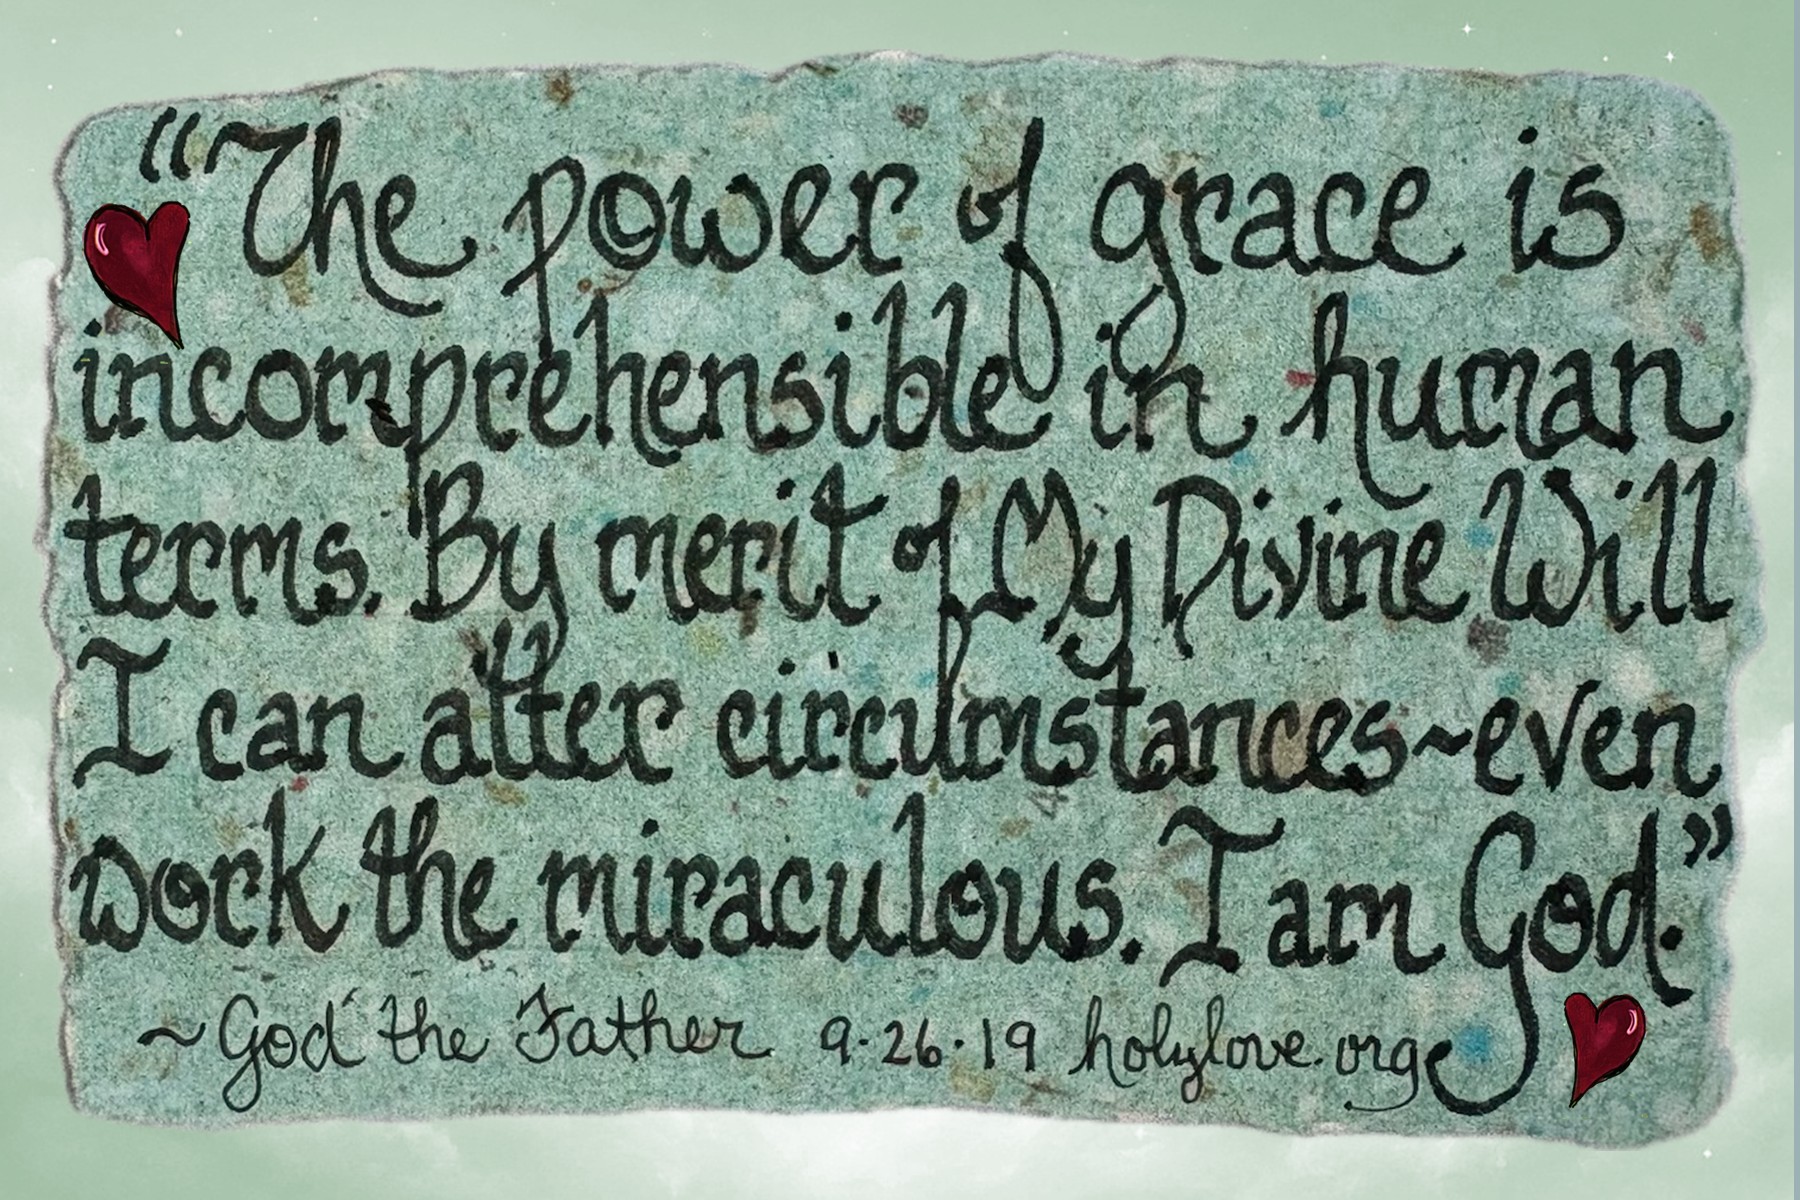 “The power of grace is
incomprehensible in human
terms. By merit of My Divine Will
I can alter circumstances~even
work the miraculous. I am God.”
~God the Father 9·26·19 holylove.org